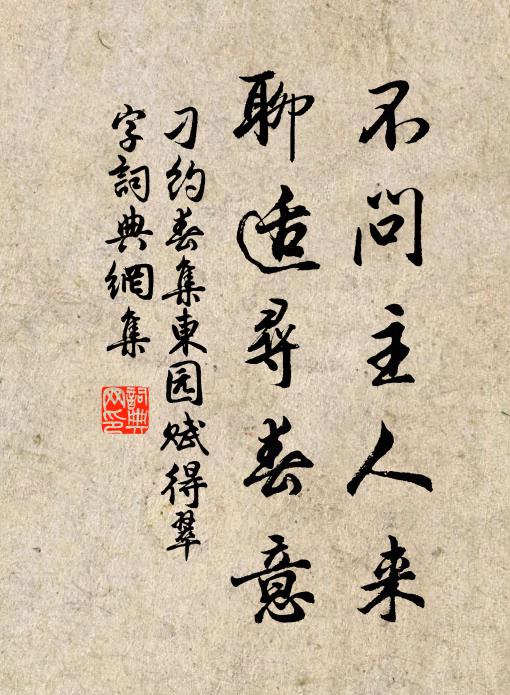 不问主人来
聊适寻春意
刁约春集東园赋得翠
字詞典網集
詞典
网印